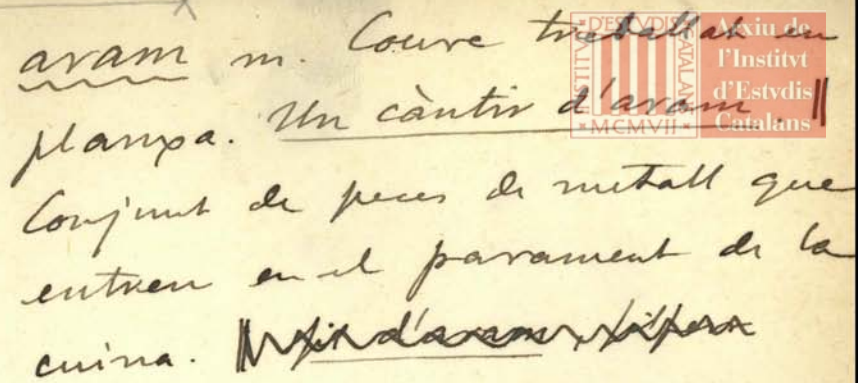 aram m. Coure treballat en
planxa. Un càntir d'aram. ||
Conjunt de peces de metall que
entren en el parament de la
cuina. ||
INSTITVT D'ESTVDIS CATALANS
MCMVII
Arxiu de
l'Institvt
d'Estvdis
Catalans